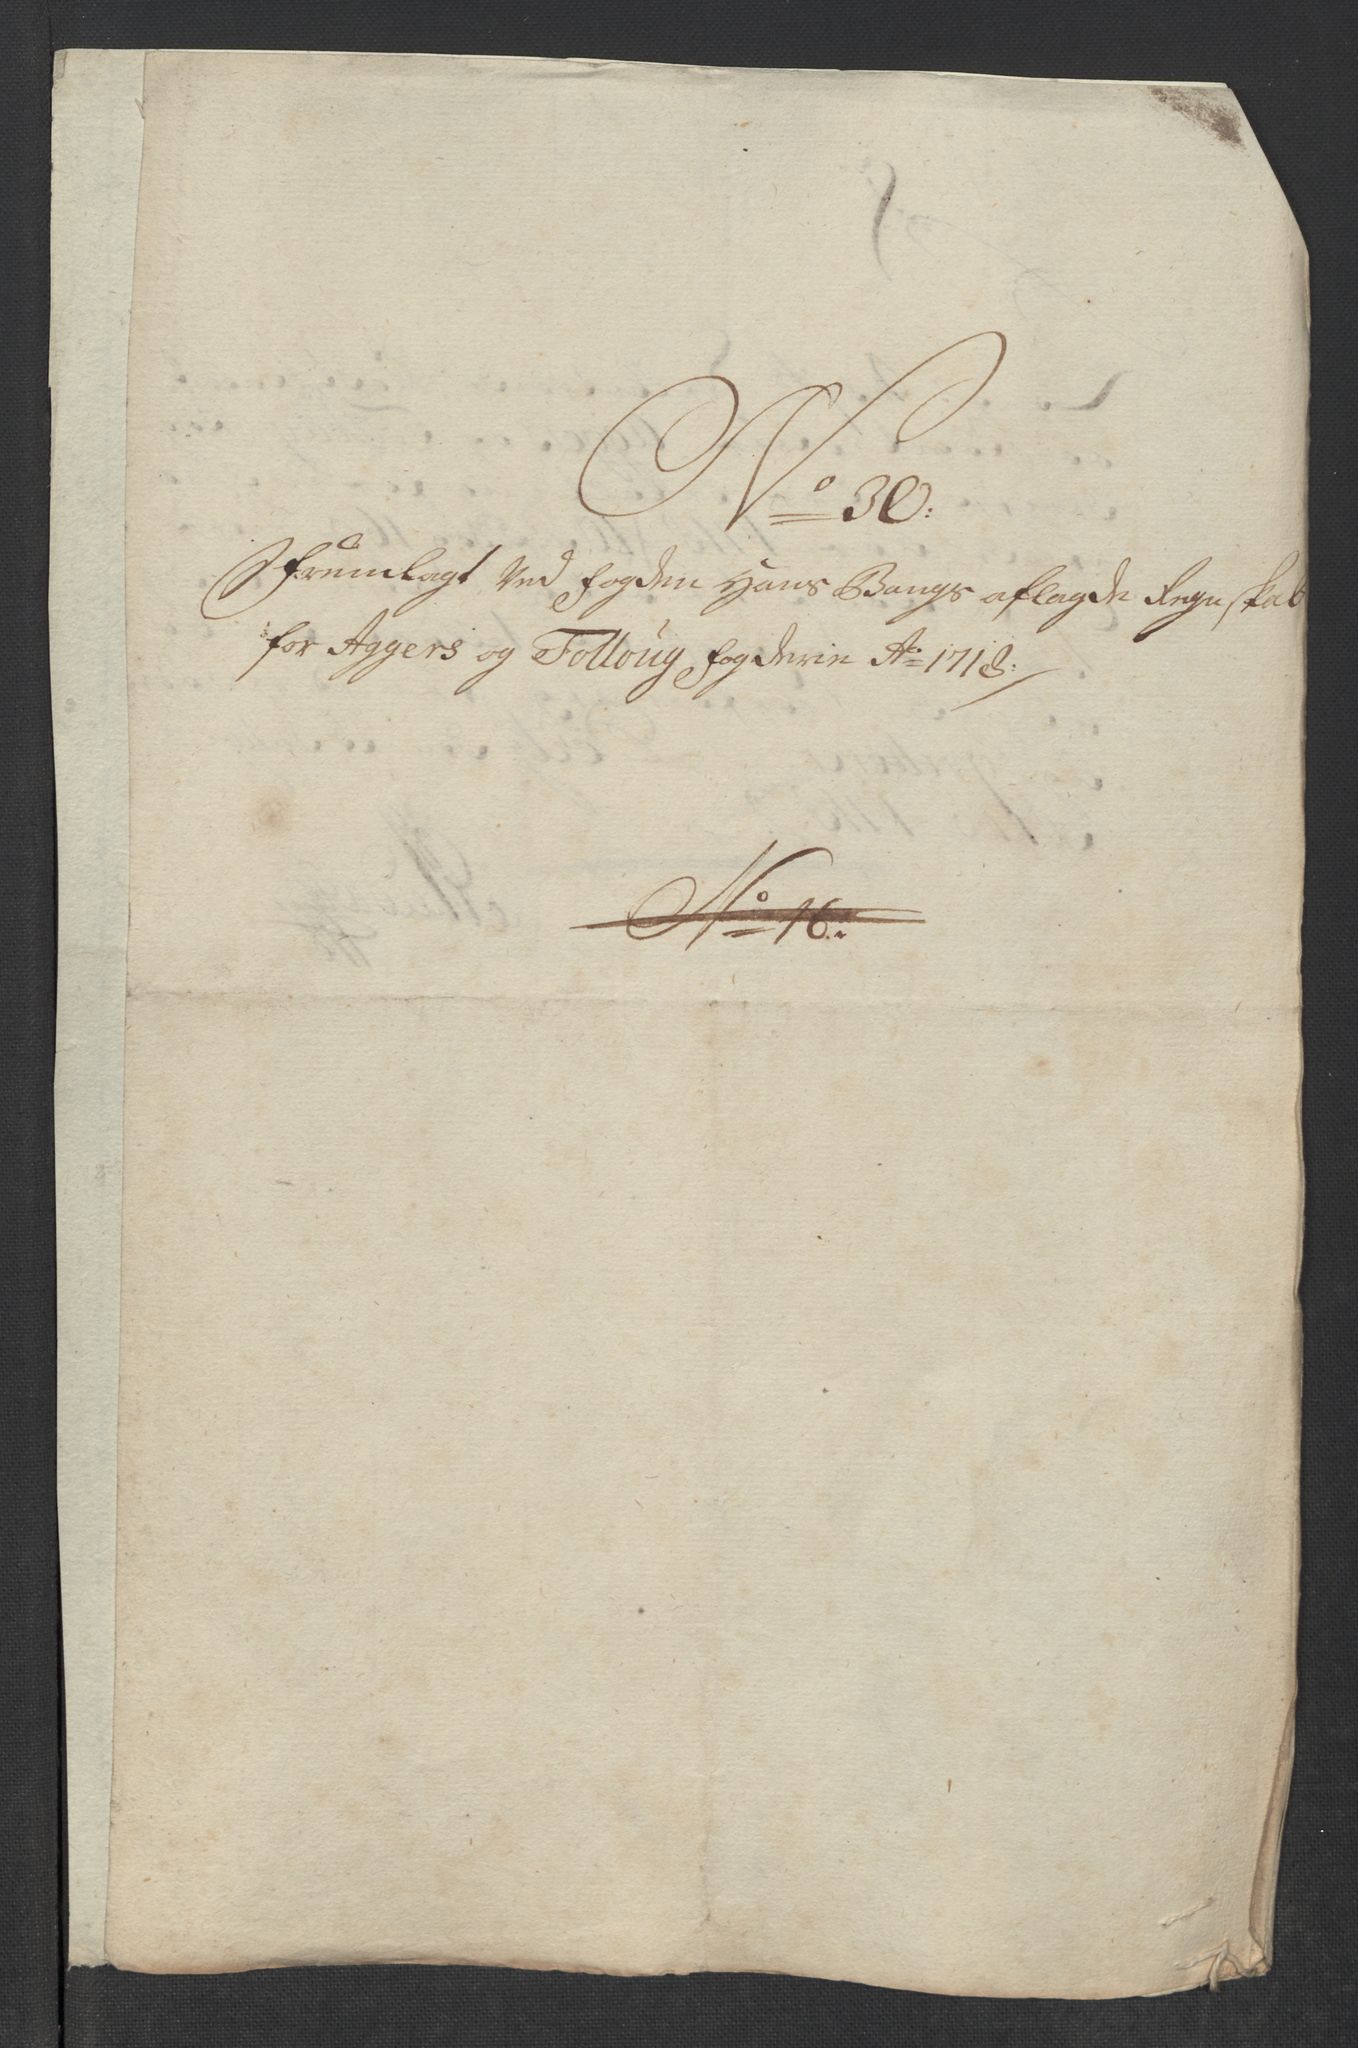 No 30:
Fremlagt Ved fogden Hans Bangs aflagde Regnskab
for Aggers og Tolloug fogderie Ao 1718:
No 16: